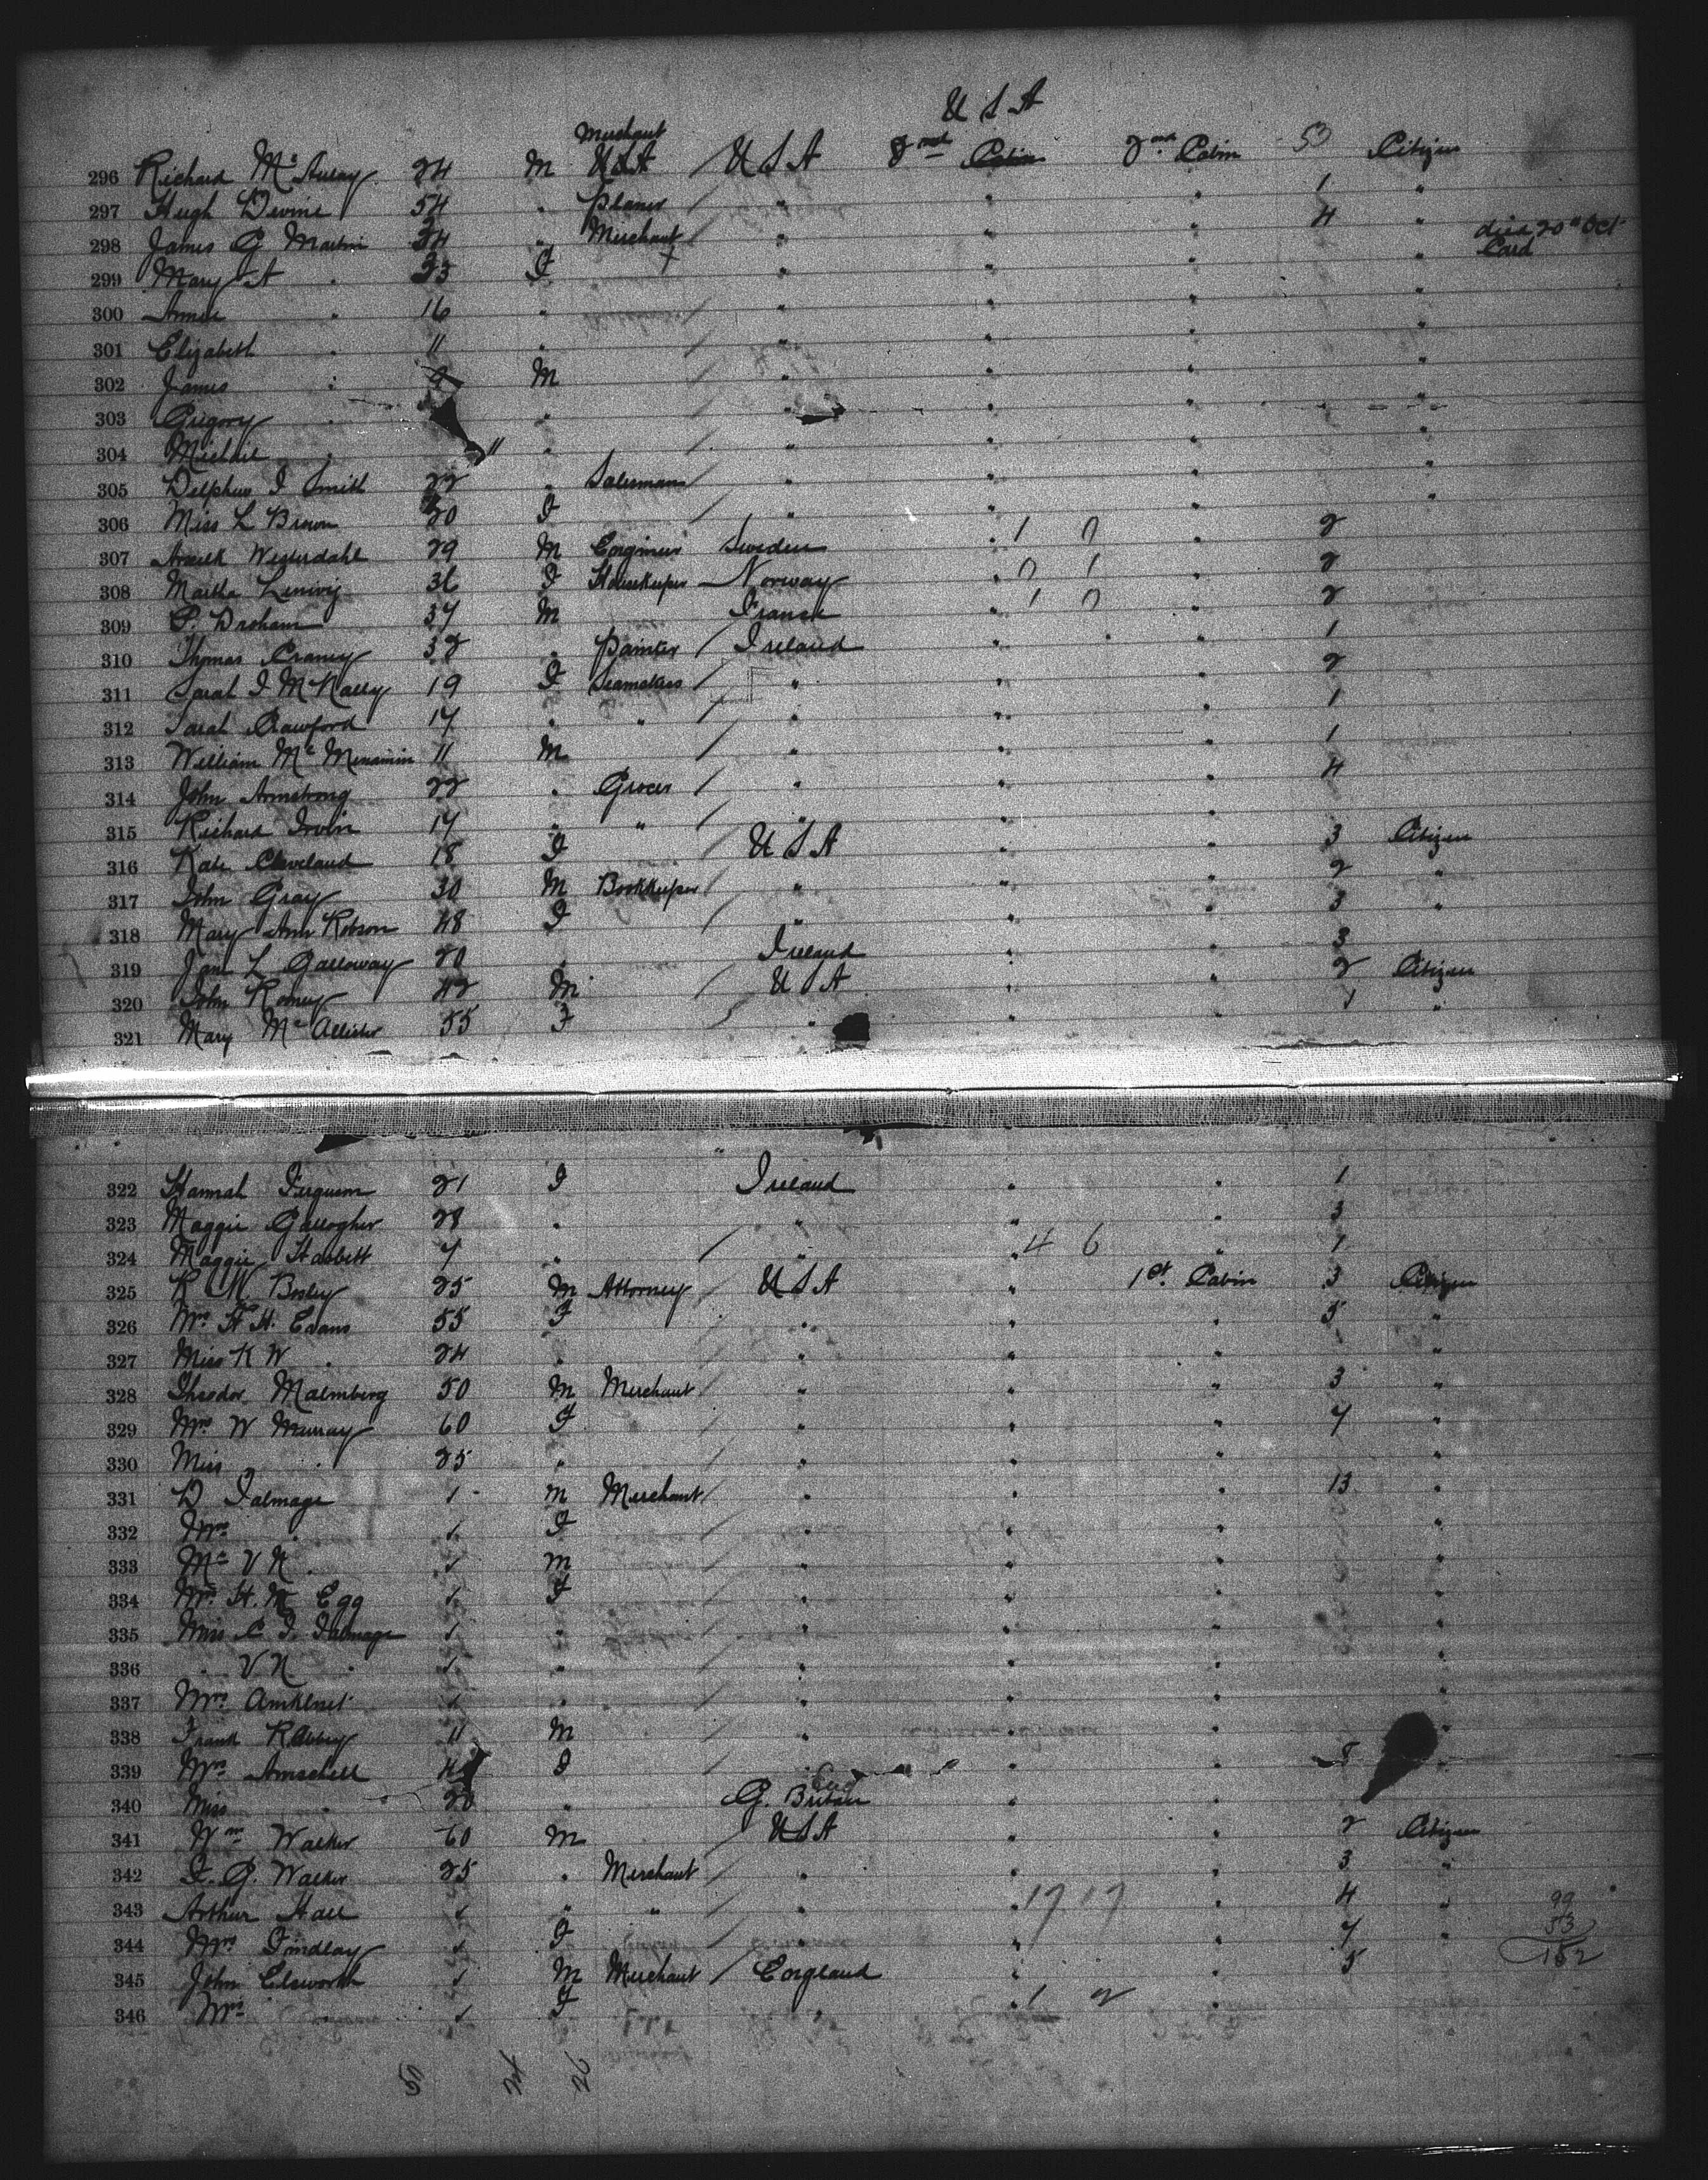 U S A
Merchant
296 Richard McAulay 24 M USA / U S A 2nd Cabin 2nd Cabin 50 Citizen
297 Hugh Devine 54 " / " " " 1 "
298 James G Martin 34 " Merchant / " " " 4 " died 20th Oct
299 Mary A " 33 F / " " " "
300 Annie " 16 " / " " " "
301 Elizabeth " 11 " / " " " "
302 James " 9 M / " " " "
303 Gregory " " / " " " "
304 " 11 " / " " " "
305 Smith 22 " Salesman / " " " "
306 Miss L Brown 20 F / " " " "
307 Westerdahl 29 M Engineer Sweden " 1 0 " 2
308 Martha 36 F Housekeeper Norway " 0 1 " 2
309 P. 37 M France " 1 0 " 2
310 Thomas Craney 32 " Painter / Ireland " " 1
311 Sarah J McNally 19 F / " " " 2
312 Sarah Crawford 17 " " / " " " 1
313 William McMenamin 11 M / " " " 1
314 John Armstrong 22 " Grocer / " " " 4
315 Richard Irvin 17 " " / " " "
316 Kate Cleveland 18 F U S A " " 3 Citizen
317 John Gray 30 M Bookkeeper / " " " 2 "
318 Mary Ann Robson 48 F / " " " 3 "
319 Jane L Galloway 20 " Ireland " " 3
320 John 42 M / U S A " " 2 Citizen
321 Mary McAllister 55 F / " " " 1 "
322 Hannah Ferguson 21 F Ireland " " 1
323 Maggie Gallogher 28 " " " " 3
324 Maggie 7 " / " " 4 6 " 1
325 R W Bosley 25 M Attorney / U S A " 1st Cabin 3 Citizen
326 Mrs H H. Evans 55 F / " " " 5 "
327 Miss K W " 24 " / " " " "
328 Theodor Malmberg 50 M Merchant / " " " 3 "
329 Mrs W Murray 60 F / " " " 7 "
330 Miss " 25 " / " " " "
331 D Talmage / M Merchant / " " " 13 "
332 Mrs " / F / " " " "
333 V N " / M / " " " "
334 Mrs H. M Egg / F / " " " "
335 Miss C T. Talmage / " / " " " "
336 " V N " / " / " " " "
337 Mrs / " / " " " "
338 Frank 11 M / " " " "
339 Mrs Amschell F " " "
340 Miss " 20 " G. Britain " "
341 Wm Walker 60 M / U S A " " 2 Citizen
342 F. G. Walker 25 " Merchant / " " " 3 "
343 Arthur Hall / " " / " " 17 17 " 4 " 99
344 Mrs Findlay / F / " " " 7 " 53
345 John Elsworth / M Merchant / England " " 5 152
346 Mrs " / F " " 1 2 "